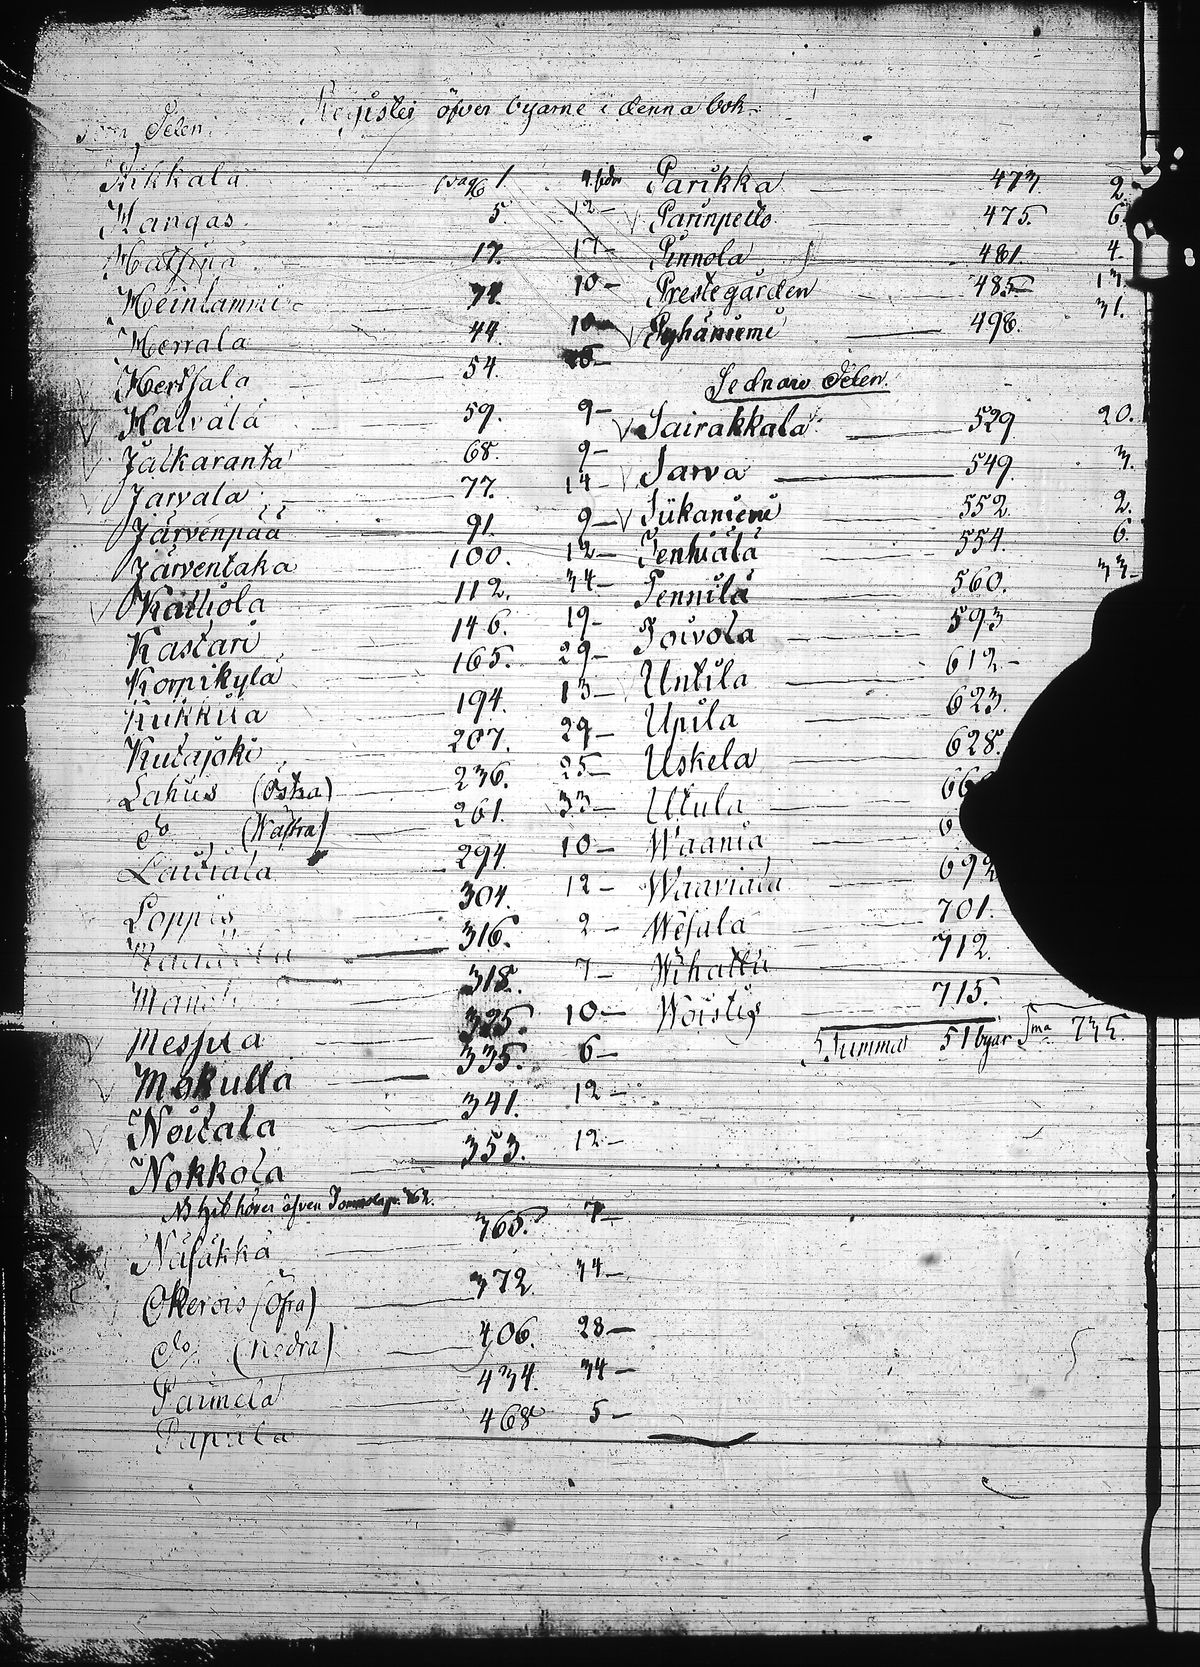 Register öfver byarne i denna bok.
Delen.
Hikkala pag 1 4. sidor
Kangas 5. 12-
17. 17-
Heinlammi 34 10-
Herrala 44 10-
Hertsala 54.
Kalvala 59. 9-
Jalkaranta 68. 9-
Jarvala 77. 14-
Järvenpää 91. 9-
Järventaka 100. 12-
Kattiola 112. 34-
Kastari 146. 19-
Korpikylä 165. 29-
Kukkila 194. 13-
Kutajoki 207. 29-
Lahtis (Östra) 236. 25-
do (Wästra) 261. 33-
Lautiala 294. 10-
Loppis 304. 12-
316. 2-
318. 7-
Messila 325. 10-
Mokulla 335. 6-
Noitala 341. 12-
Nokkola 353. 12-
Näsäkkä 365. 7-
Okerois (Öfra) 372. 34-
do (Nedra) 406. 28-
Paimela 434. 34-
Papula 468 5-
Parikka 473. 2.
Parinpelto 475. 6.
Pinnola 481. 4-
Prestegården 485- 13.
Pyhäniemi 498. 31.
Sednare Delen.
Sairakkala 529 20.
Sarva 549. 3.
Siikaniemi 552. 2.
Tenhiälä 554. 6.
Tennilä 560. 33-
Toivola 593
Untila 612-
Upila 623.
Uskela 628.
Utula
Waania
Waaviala 692
Wesala 701.
Wihattu 712.
Woistis 715.
Summa 51 byar Sma 735.